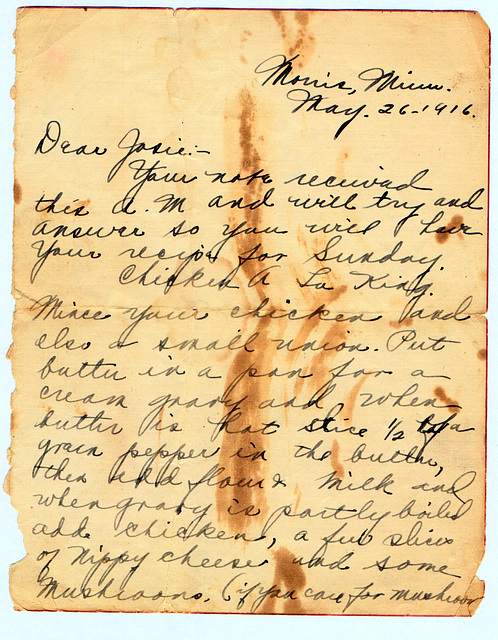 Morris, Minn.
May. 26-1916.
Dear Josie:-
Your note received
this A.M and will try and
answer so you will have
your recipe for Sunday.
Chicken A La King.
Mince your chicken and
also a small onion. Put
butter in a pan for a
cream gravy and when
butter is hot slice 1/2 of a
green pepper in the butter,
then add flour & milk and
when gravy is partly boiled
add chicken, a few slices
of Nippy cheese and some
Mushrooms, (if you care for mushroom